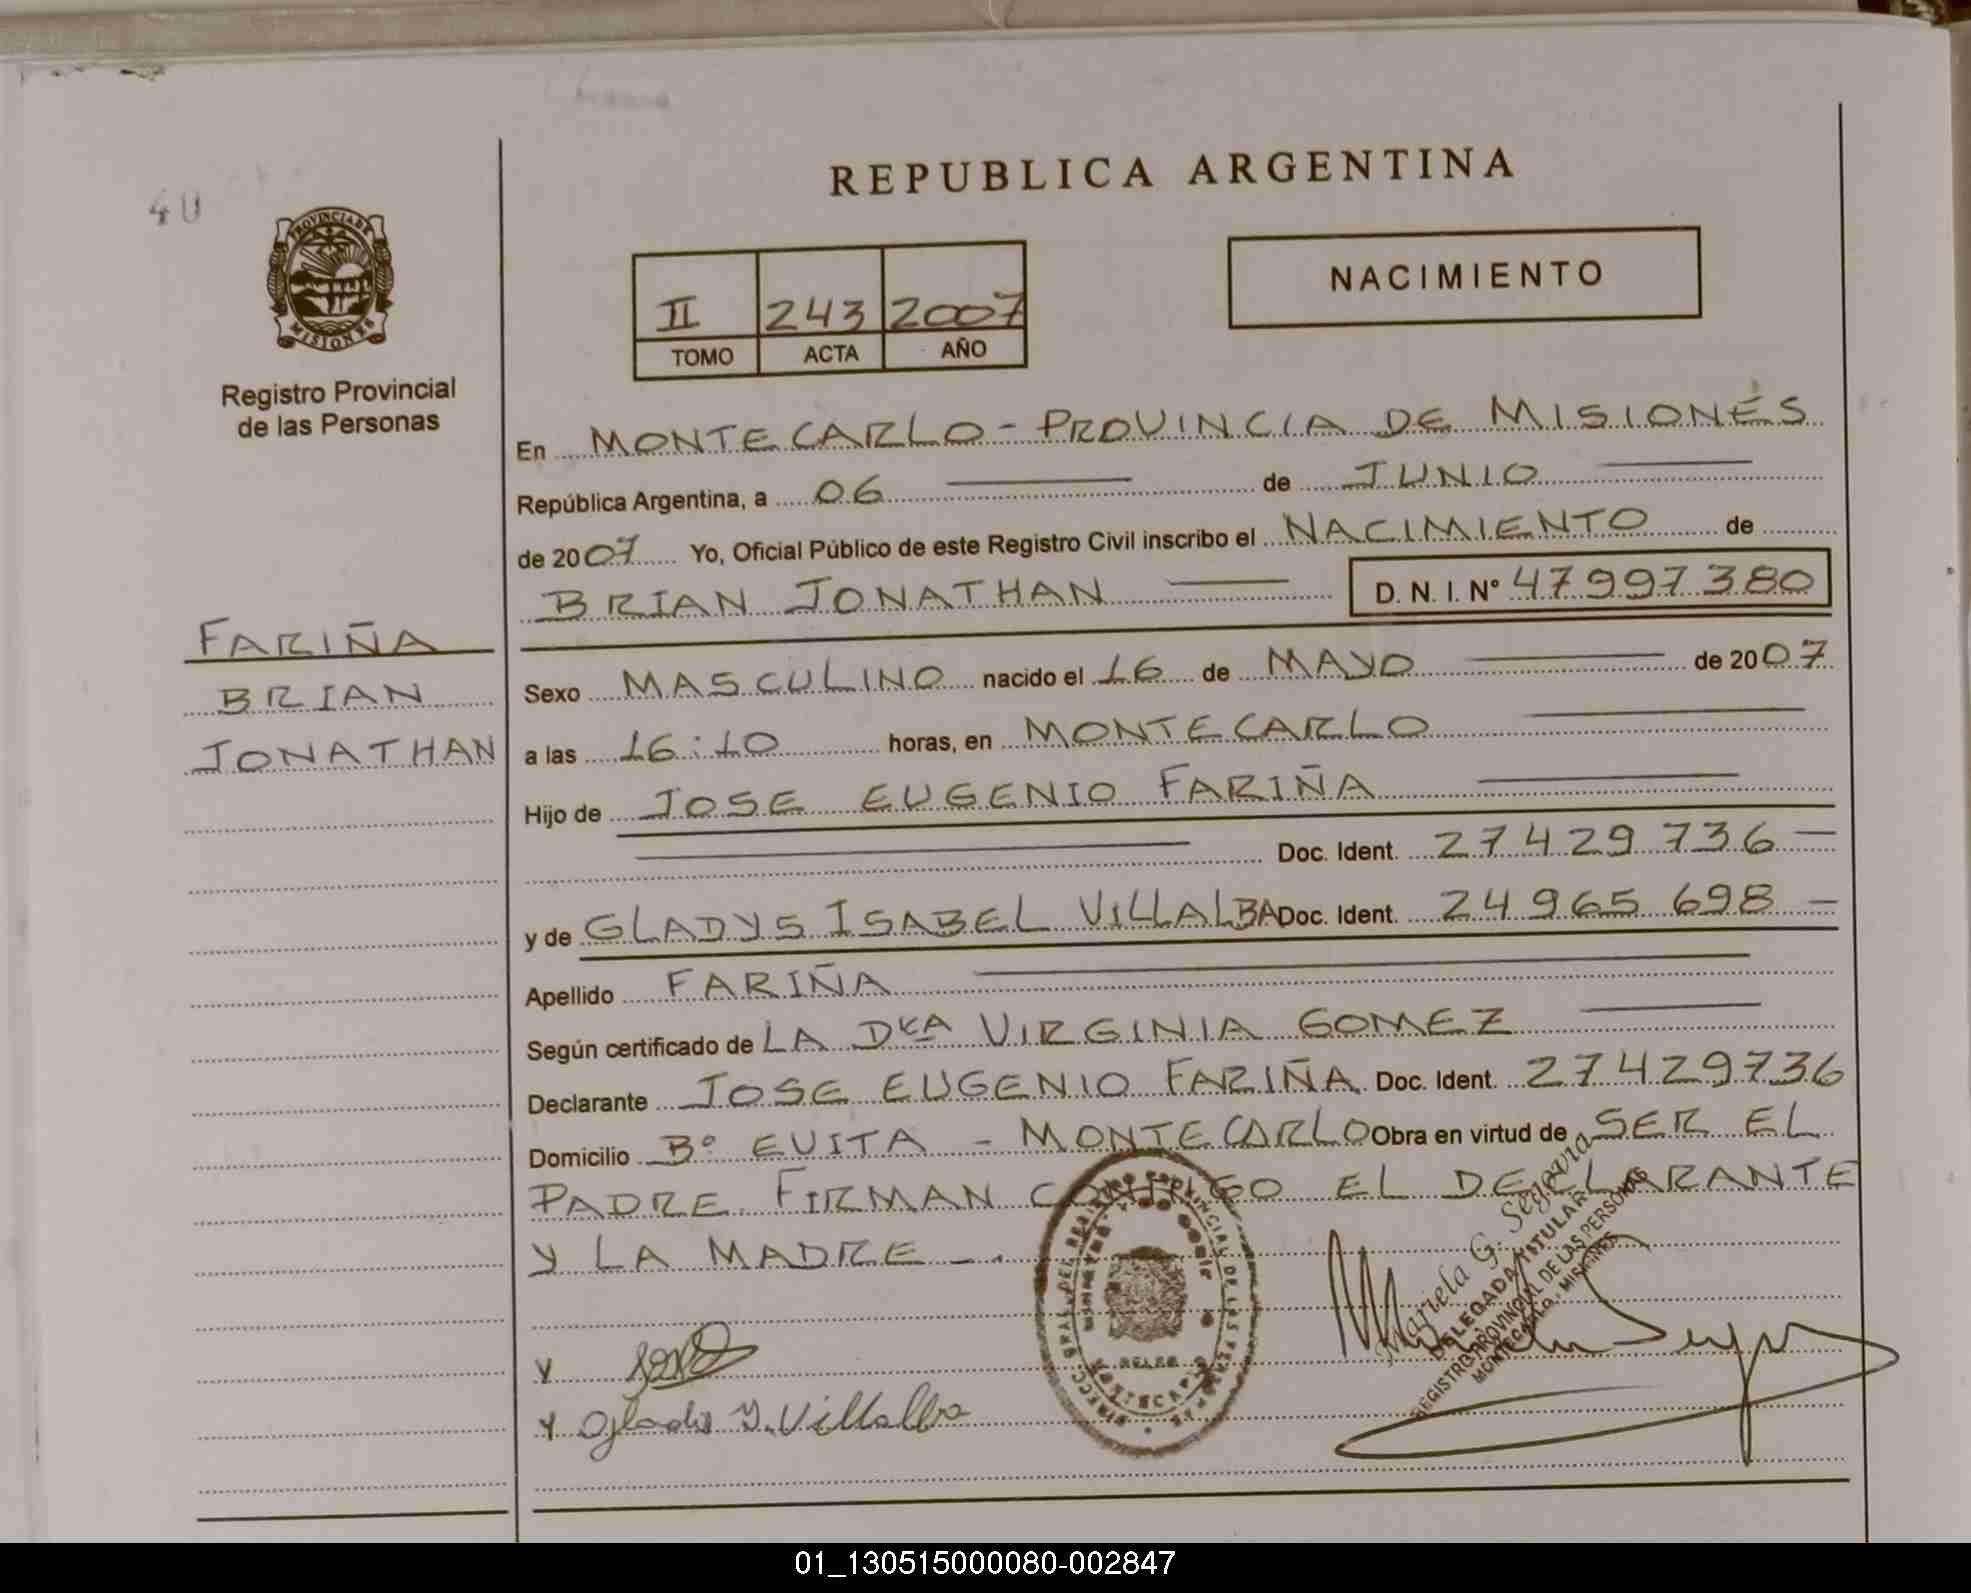 REPUBLICA ARGENTINA
40
PROVINCIA DE
MISIONES
Registro Provincial
de las Personas
II 243 2007
TOMO ACTA AÑO
NACIMIENTO
En MONTECARLO - PROVINCIA DE MISIONES
República Argentina, a 06 de JUNIO
de 2007 Yo, Oficial Público de este Registro Civil inscribo el NACIMIENTO de
BRIAN JONATHAN D. N. I. Nº 47997380
FARIÑA
BRIAN
JONATHAN
Sexo MASCULINO nacido el 16 de MAYO de 2007
a las 16:10 horas, en MONTECARLO
Hijo de JOSE EUGENIO FARIÑA
Doc. Ident. 27429736
y de GLADYS ISABEL VILLALBA Doc. Ident. 24965698
Apellido FARIÑA
Según certificado de LA DRA VIRGINIA GOMEZ
Declarante JOSE EUGENIO FARIÑA Doc. Ident. 27429736
Domicilio Bº EVITA - MONTECARLO Obra en virtud de SER EL
PADRE. FIRMAN CONMIGO EL DECLARANTE
Y LA MADRE -.
Mariela G. Segovia
DELEGADA TITULAR
REGISTRO PROVINCIAL DE LAS PERSONAS
MONTECARLO - MISIONES
Y
Y Gladis I. Villalba
01_130515000080-002847